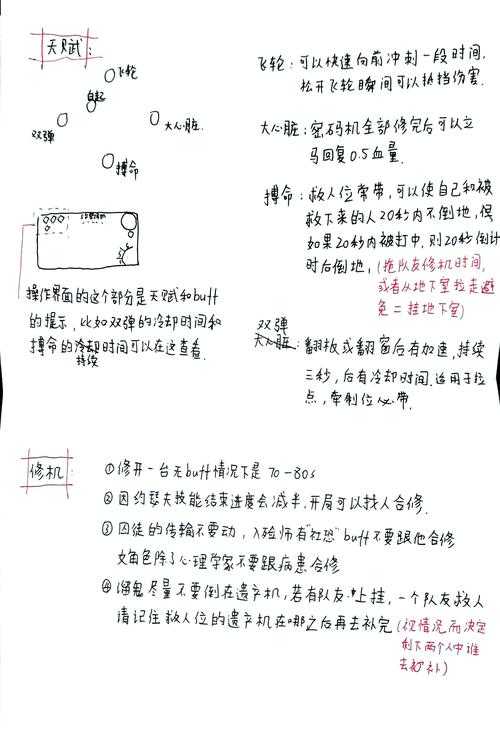 天赋：
飞轮
自起
双弹
大心脏
搏命
操作界面的这个部分是天赋和buff
的提示，比如双弹的冷却时间和
搏命的冷却时间可以在这查看.
持续
飞轮：可以快速向前冲刺一段时间.
松开飞轮瞬间可以抵挡伤害.
大心脏：密码机全部修完后可以立
马回复0.5血量.
搏命：救人位常带，可以使自己和被
救下来的人20秒内不倒地，但
如果20秒内被打中.则20秒倒计
时后倒地，(拖队友修机时间,
或者从地下室拉走避
免二挂地下室)
双弹
大心脏：翻板或翻窗后有加速，持续
三秒，后有冷却时间.适用于拉
点，牵制位必带.
修机：
①修开一台无buff情况下是70-80s
②因约瑟夫技能结束进度会减半.开局可以找人合修.
③囚徒的传输不要动，入殓师有"社恐"buff不要跟他合修
女角色除了心理学家不要跟病患合修
④溜鬼尽量不要倒在遗产机，若有队友上挂，一个队友救人
请记住救人位的遗产机在哪之后再去补完(视情况而决定
剩下两个人中谁
去补)